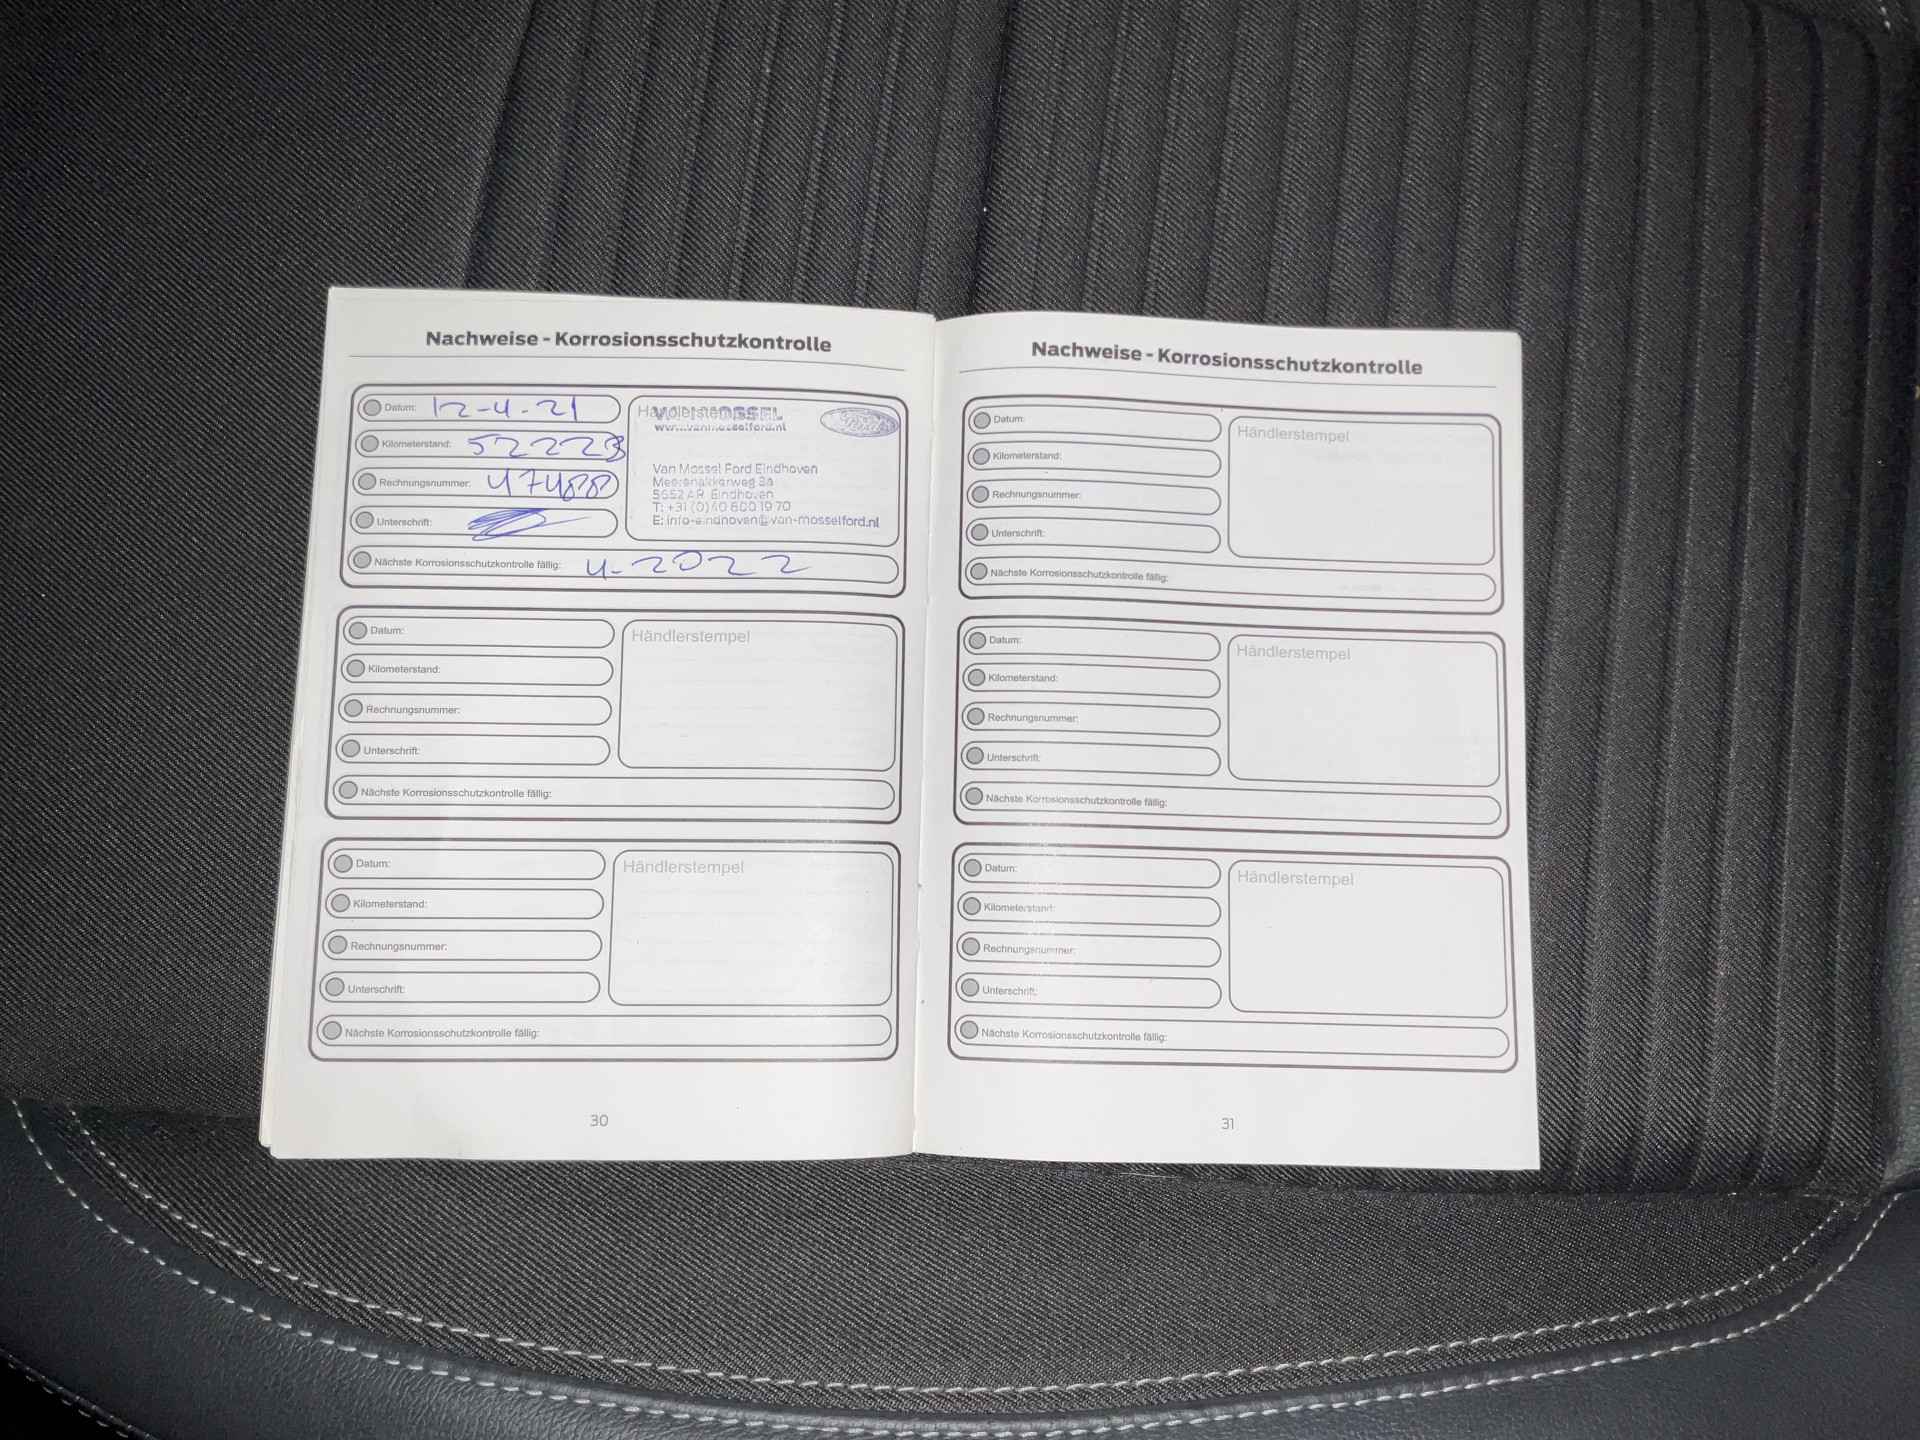 Nachweise - Korrosionsschutzkontrolle
Datum: 12-4-21
Kilometerstand: 52223
Rechnungsnummer: 47488
Unterschrift:
Händlerstempel
VAN MOSSEL
www.vanmosselford.nl
Ford
Van Mossel Ford Eindhoven
Meerenakkerweg 3a
5652 AR Eindhoven
T: +31 (0)40 800 19 70
E: info-eindhoven@van-mosselford.nl
Nächste Korrosionsschutzkontrolle fällig: 4-2022
Datum:
Kilometerstand:
Rechnungsnummer:
Unterschrift:
Händlerstempel
Nächste Korrosionsschutzkontrolle fällig:
Datum:
Kilometerstand:
Rechnungsnummer:
Unterschrift:
Händlerstempel
Nächste Korrosionsschutzkontrolle fällig:
30
Nachweise - Korrosionsschutzkontrolle
Datum:
Kilometerstand:
Rechnungsnummer:
Unterschrift:
Händlerstempel
Nächste Korrosionsschutzkontrolle fällig:
Datum:
Kilometerstand:
Rechnungsnummer:
Unterschrift:
Händlerstempel
Nächste Korrosionsschutzkontrolle fällig:
Datum:
Kilometerstand:
Rechnungsnummer:
Unterschrift:
Händlerstempel
Nächste Korrosionsschutzkontrolle fällig:
31